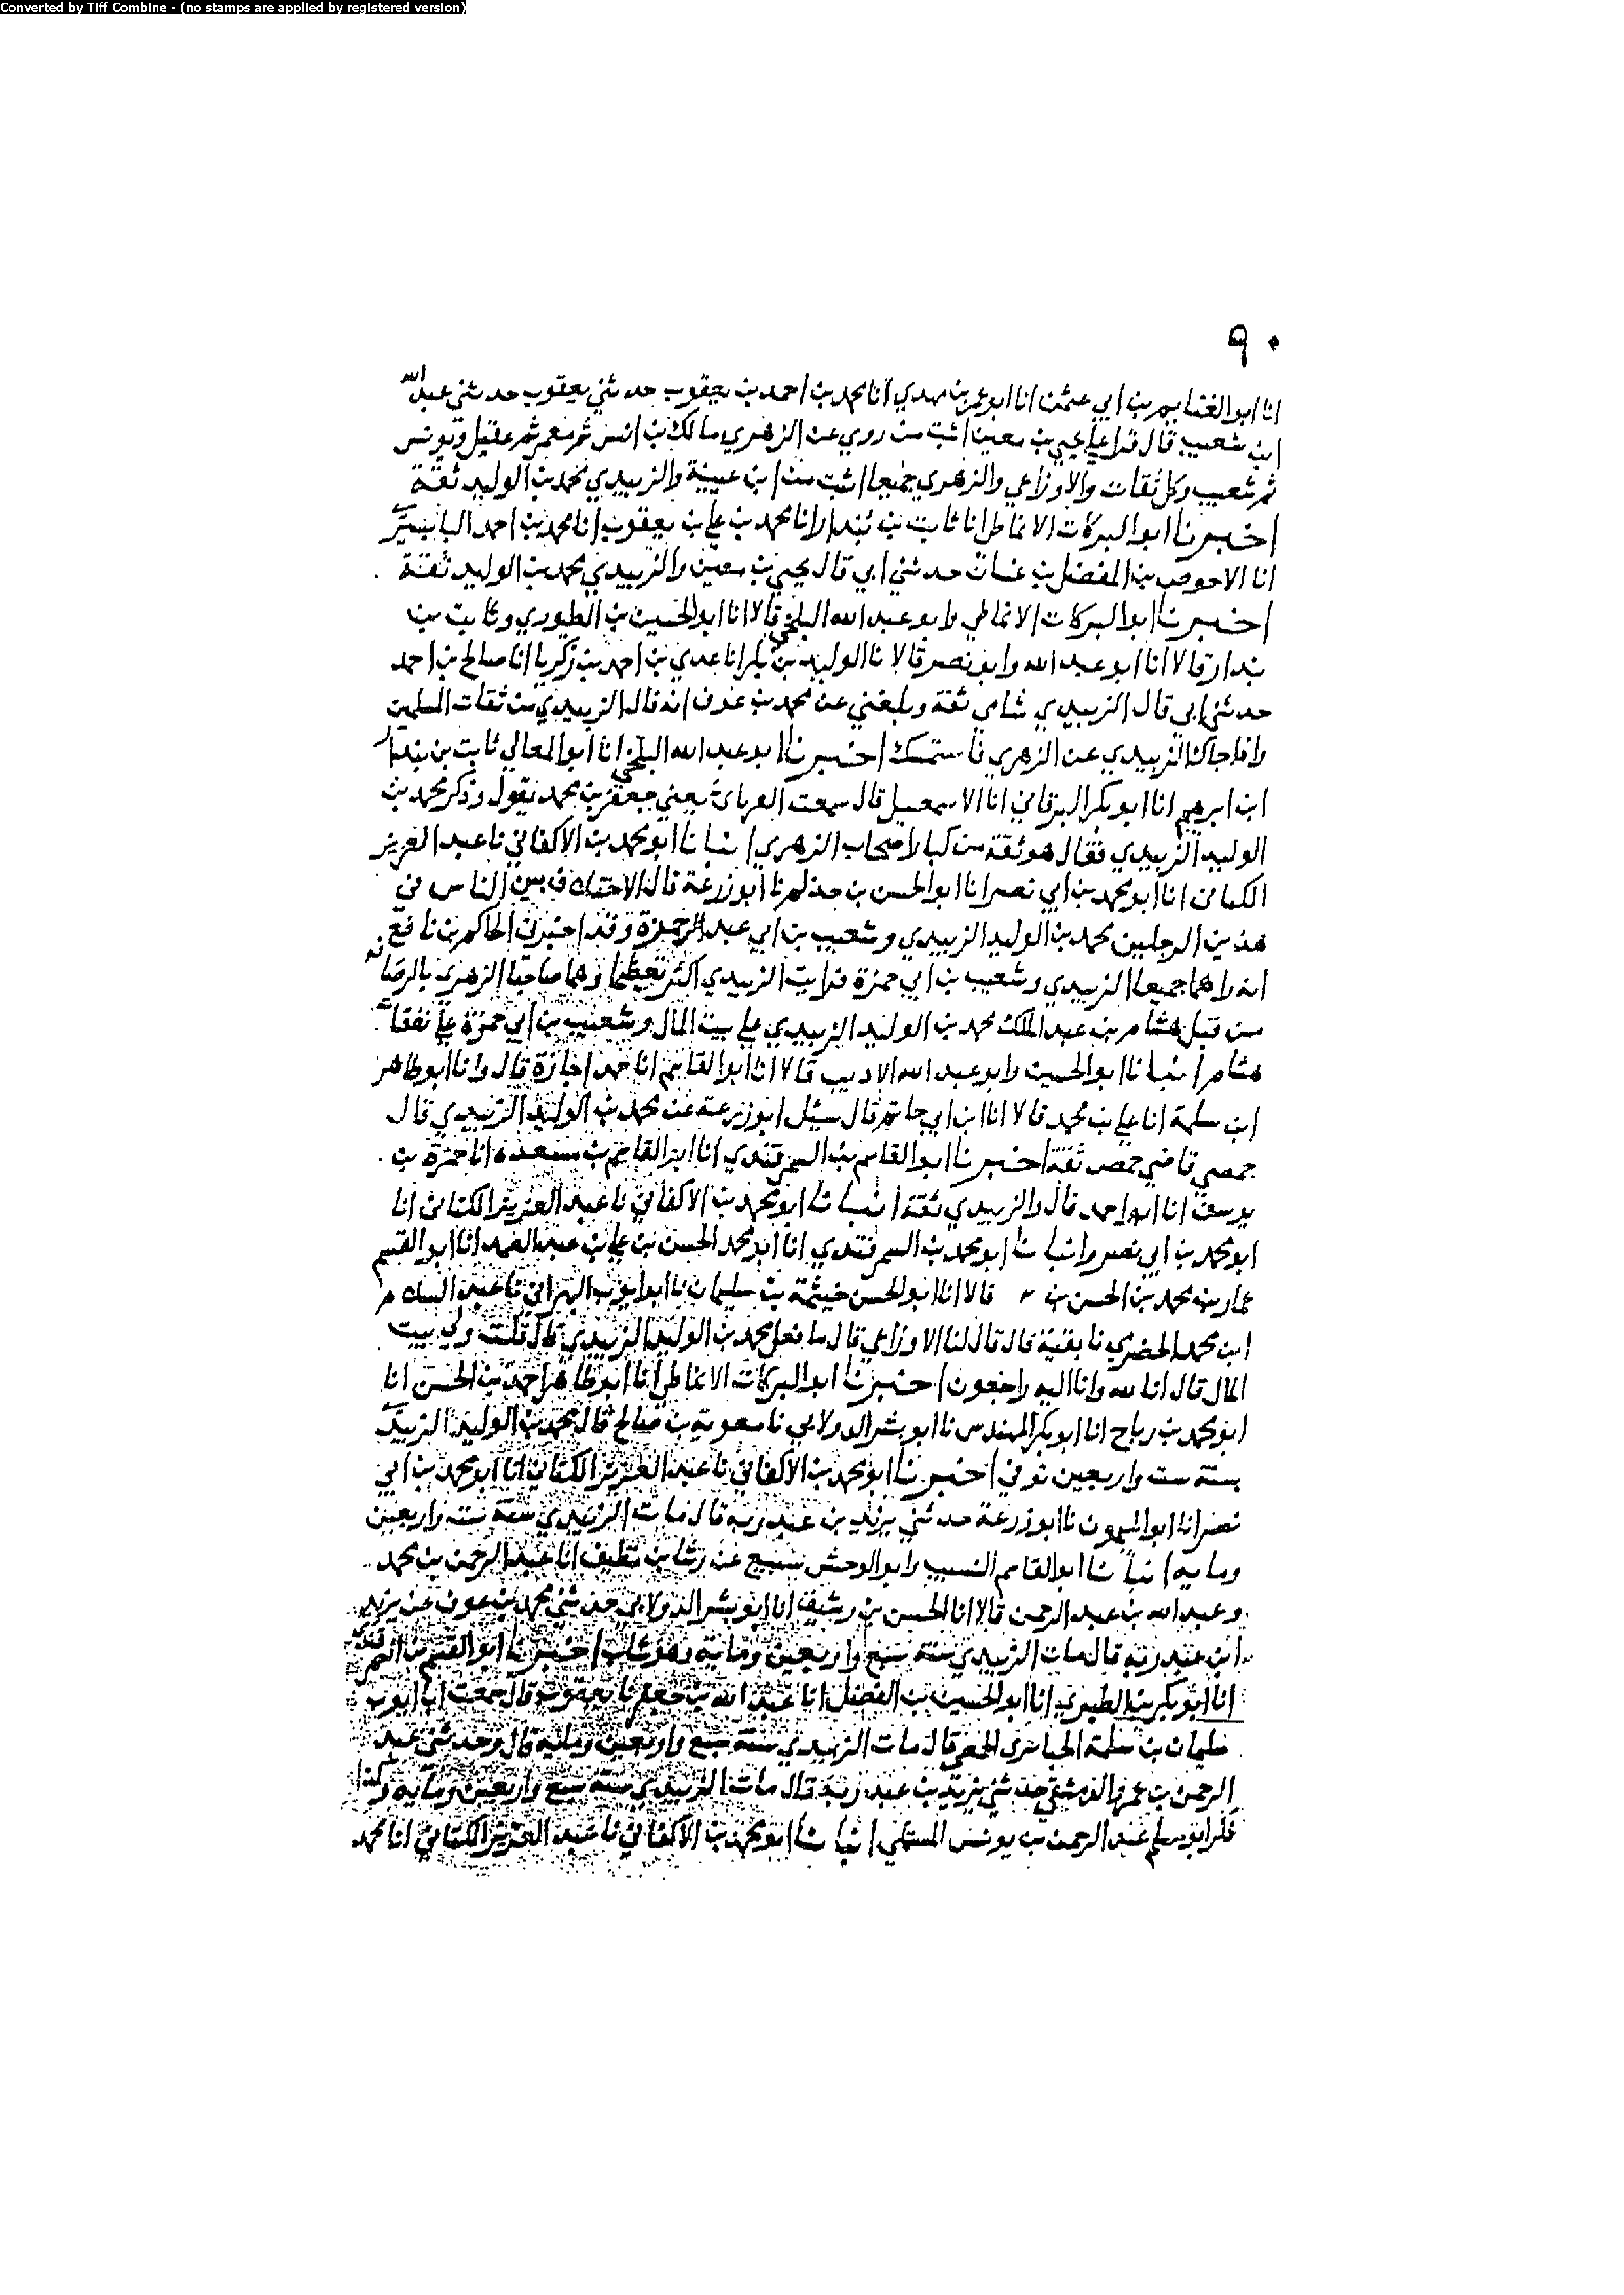 Converted by Tiff Combine - (no stamps are applied by registered version)
٩٠
انا ابو الغنايم بن ابي عثمن انا ابو عمر بن مهدي انا محمد بن احمد بن يعقوب حدثني يعقوب حدثني عبد الله
ابن شعيب قال قرا علي يحيى بن معين اثبت من روي عن الزهري مالك بن انس ثم معمر ثم عقيل ويونس
ثم شعيب وكل ثقات والاوزاعي والزهري جميعا اثبت من ابن عيينة والزبيدي محمد بن الوليد ثقة
اخبرنا ابو البركات الانماطي انا ثابت بن بندار انا محمد بن علي بن يعقوب انا محمد بن احمد البابسيري
انا الاحوص بن المفضل بن غسان حدثني ابي قال يحيى بن معين والزبيدي محمد بن الوليد ثقة
اخبرنا ابو البركات الانماطي وابو عبد الله البلخي قالا انا ابو الحسين بن الطيوري وثابت بن
بندار قالا انا ابو عبد الله وابو نصر قالا نا الوليد بن بكر انا علي بن احمد بن زكريا انا صالح بن احمد
حدثني ابي قال الزبيدي شامي ثقة وبلغني عن محمد بن عوف انه قال الزبيدي من ثقات المسلمين
واذا جاك الزبيدي عن الزهري فاستمسك اخبرنا ابو عبد الله البلخي انا ابو المعالي ثابت بن بندار
ابن ابرهيم انا ابو بكر البرقاني انا الاسمعيل قال سمعت الفريابي يعني جعفر بن محمد يقول وذكر محمد بن
الوليد الزبيدي فقال هو ثقة من كبار اصحاب الزهري انبانا ابو محمد بن الاكفاني نا عبد العزيز
الكتاني انا ابو محمد بن ابي نصر انا ابو الحسن بن حذلم نا ابو زرعة قال الاختلاف بين الناس في
هذين الرجلين محمد بن الوليد الزبيدي وشعيب بن ابي حمزة وقد اخبرني الحاكم بن نافع
انه راهما جميعا الزبيدي وشعيب بن ابي حمزة فرايت الزبيدي اكثر تعظيما وهما صاحبا الزهري بالرصافه
من قبل هشام بن عبد الملك محمد بن الوليد الزبيدي علي بيت المال وشعيب بن ابي حمزة علي نفقات
هشام انبانا ابو الحسين وابو عبد الله الاديب قالا انا ابو القاسم انا حمد اجازة قال وانا ابو طاهر
ابن سلمة انا علي بن محمد قالا انا ابن ابي حاتم قال سئل ابو زرعة عن محمد بن الوليد الزبيدي قال
حمصي قاضي حمص ثقة اخبرنا ابو القاسم بن السمرقندي انا ابو القاسم بن مسعدة انا حمزة بن
يوسف انا ابو احمد قال والزبيدي ثقة انبانا ابو محمد بن الاكفاني نا عبد العزيز الكتاني انا
ابو محمد بن ابي نصر وانبانا ابو محمد بن السمرقندي انا ابو محمد الحسن بن علي بن عبد الصمد انا ابو القسم
عمار بن محمد بن الحسن بن قالا انا ابو الحسن خيثمة بن سليمان نا ابو ايوب البهراني نا عبد السلام
ابن محمد الحضرمي نا بقية قال قال لنا الاوزاعي قال ما فعل محمد بن الوليد الزبيدي قال قلت ولي بيت
المال قال انا لله وانا اليه راجعون اخبرنا ابو البركات الانماطي انا ابو طاهر احمد بن الحسن انا
ابو محمد بن رباح انا ابو بكر المهندس نا ابو بشر الدولابي نا معوية بن صالح قال محمد بن الوليد الزبيدي
سنة ست واربعين توفي اخبرنا ابو محمد بن الاكفاني نا عبد العزيز الكتاني انا ابو محمد بن ابي
نصر انا ابو الميمون نا ابو زرعة حدثني يزيد بن عبد ربه قال مات الزبيدي سنة ستة واربعين
ومايه انبانا ابو القاسم النسيب وابو الوحش سبيع عن رشا بن نظيف انا عبد الرحمن بن محمد
وعبد الله بن عبد الرحمن قالا انا الحسن بن رشيق انا ابو بشر الدولابي حدثني محمد بن عوف عن يزيد
ابن عبد ربه قال مات الزبيدي سنة سبع واربعين ومايه وهو شاب اخبرنا ابو القسم بن السمرقندي
انا ابو بكر بن الطبري انا ابو الحسين بن الفضل انا عبد الله بن جعفر نا يعقوب قال سمعت ابا ايوب
سليمان بن سلمة الخبايري الحمصي قال مات الزبيدي سنة سبع واربعين ومايه قال وحدثني عبد
الرحمن بن عمرو الدمشقي حدثني يزيد بن عبد ربه قال مات الزبيدي سنة سبع واربعين ومايه وكذا
ذكر ابو مسلم عبد الرحمن بن يونس المستملي انبانا ابو محمد بن الاكفاني نا عبد العزيز الكتاني انا محمد